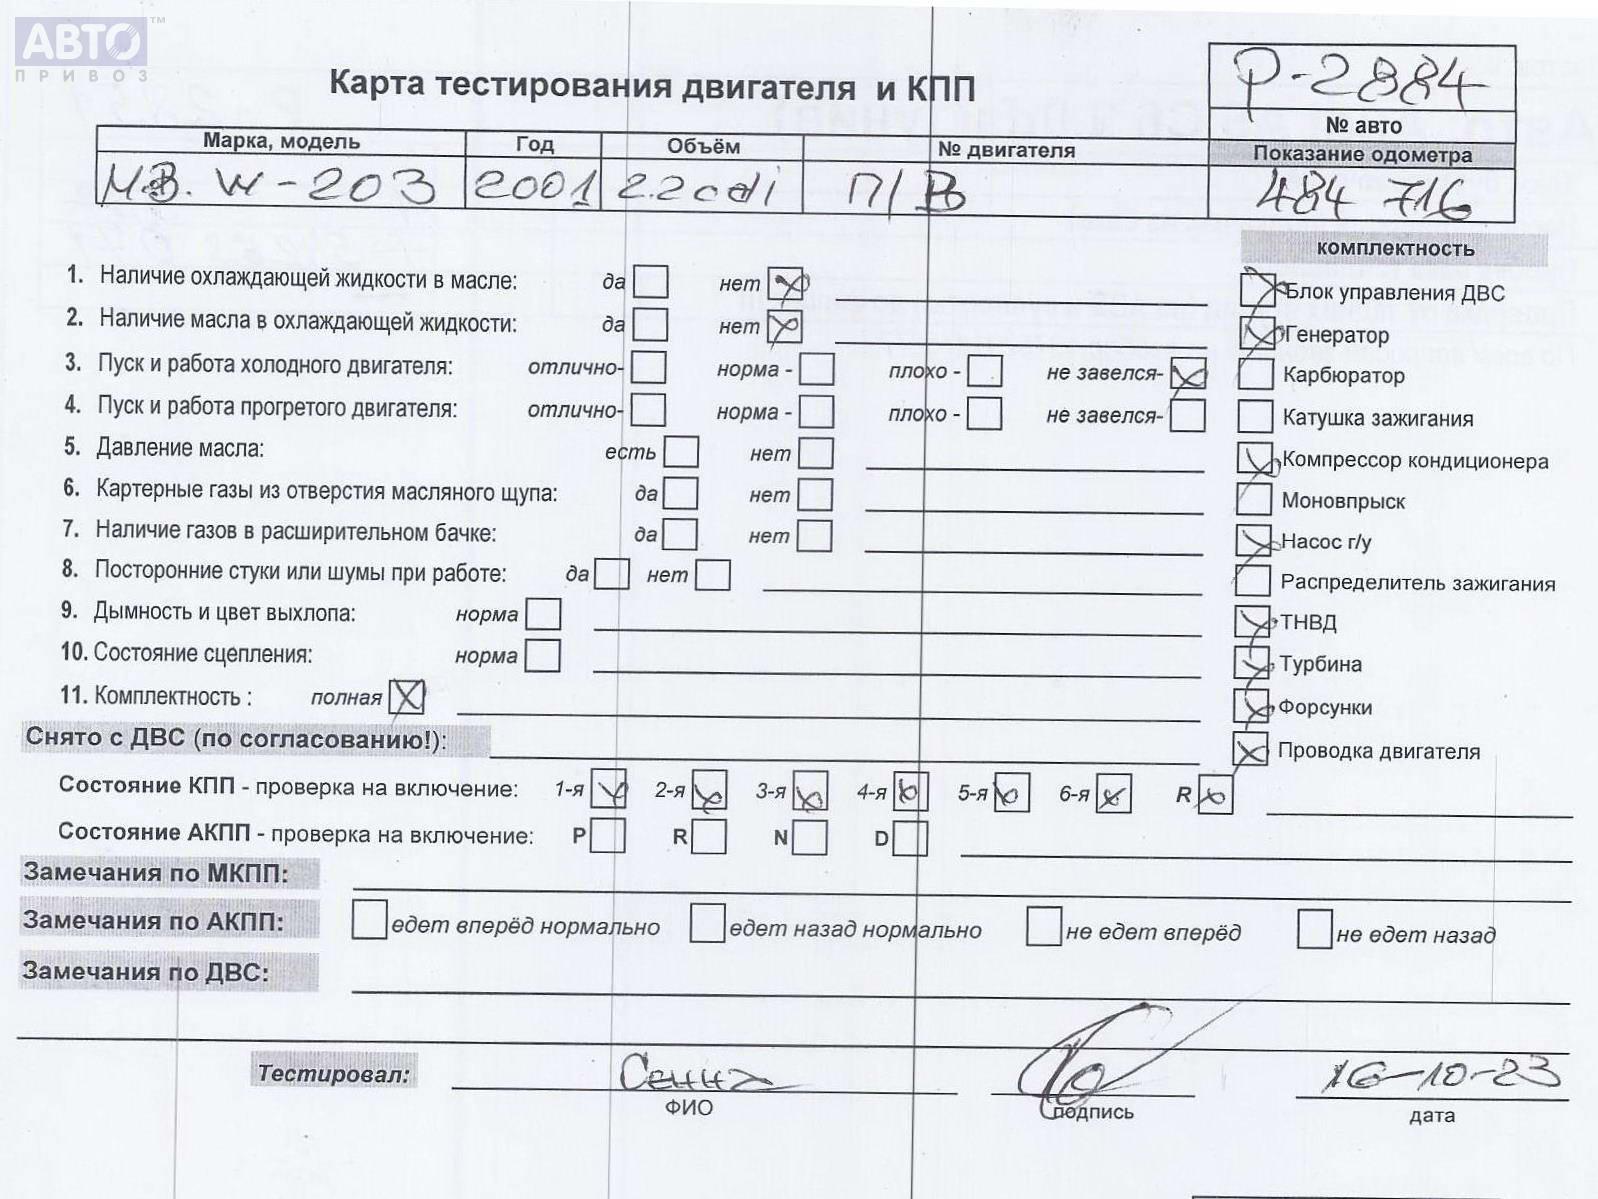 АВТО™
ПРИВОЗ
Карта тестирования двигателя и КПП
P-2884
№ авто
Марка, модель Год Объём № двигателя Показание одометра
M.B. W-203 2001 2.2cdi П/В 484 716
комплектность
1. Наличие охлаждающей жидкости в масле: да нет
Блок управления ДВС
2. Наличие масла в охлаждающей жидкости: да нет
Генератор
3. Пуск и работа холодного двигателя: отлично- норма - плохо - не завелся-
Карбюратор
4. Пуск и работа прогретого двигателя: отлично- норма - плохо - не завелся-
Катушка зажигания
5. Давление масла: есть нет
Компрессор кондиционера
6. Картерные газы из отверстия масляного щупа: да нет
Моновпрыск
7. Наличие газов в расширительном бачке: да нет
Насос г/у
8. Посторонние стуки или шумы при работе: да нет
Распределитель зажигания
9. Дымность и цвет выхлопа: норма
ТНВД
10. Состояние сцепления: норма
Турбина
11. Комплектность : полная
Форсунки
Снято с ДВС (по согласованию!):
Проводка двигателя
Состояние КПП - проверка на включение: 1-я 2-я 3-я 4-я 5-я 6-я R
Состояние АКПП - проверка на включение: P R N D
Замечания по МКПП:
Замечания по АКПП: едет вперёд нормально едет назад нормально не едет вперёд не едет назад
Замечания по ДВС:
Тестировал: Сенна 16-10-23
ФИО подпись дата